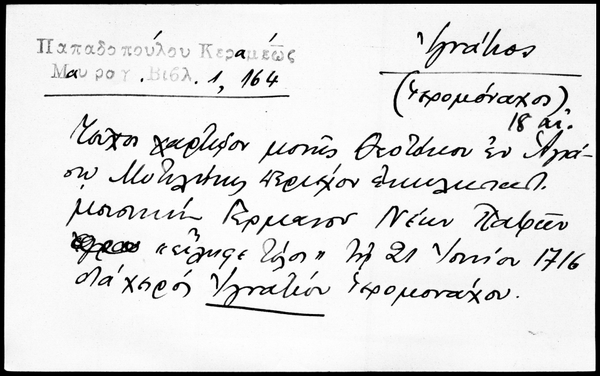 Παπαδοπούλου Κεραμέως
Μαυρογ. Βιβλ. 1, 164
Ἰγνάτιος
(ἱερομόναχος)
18 αἰ.
χαρτῷον μονῆς Θεοτόκου ἐν Ἀγιά-
σῳ Μυτιλήνης περιέχον
Γερμανοῦ Νέων Πατρῶν
«εἴληφε τέλος» τῇ 21 Ἰουνίου 1716
διὰ χειρός Ἰγνατίου ἱερομονάχου.